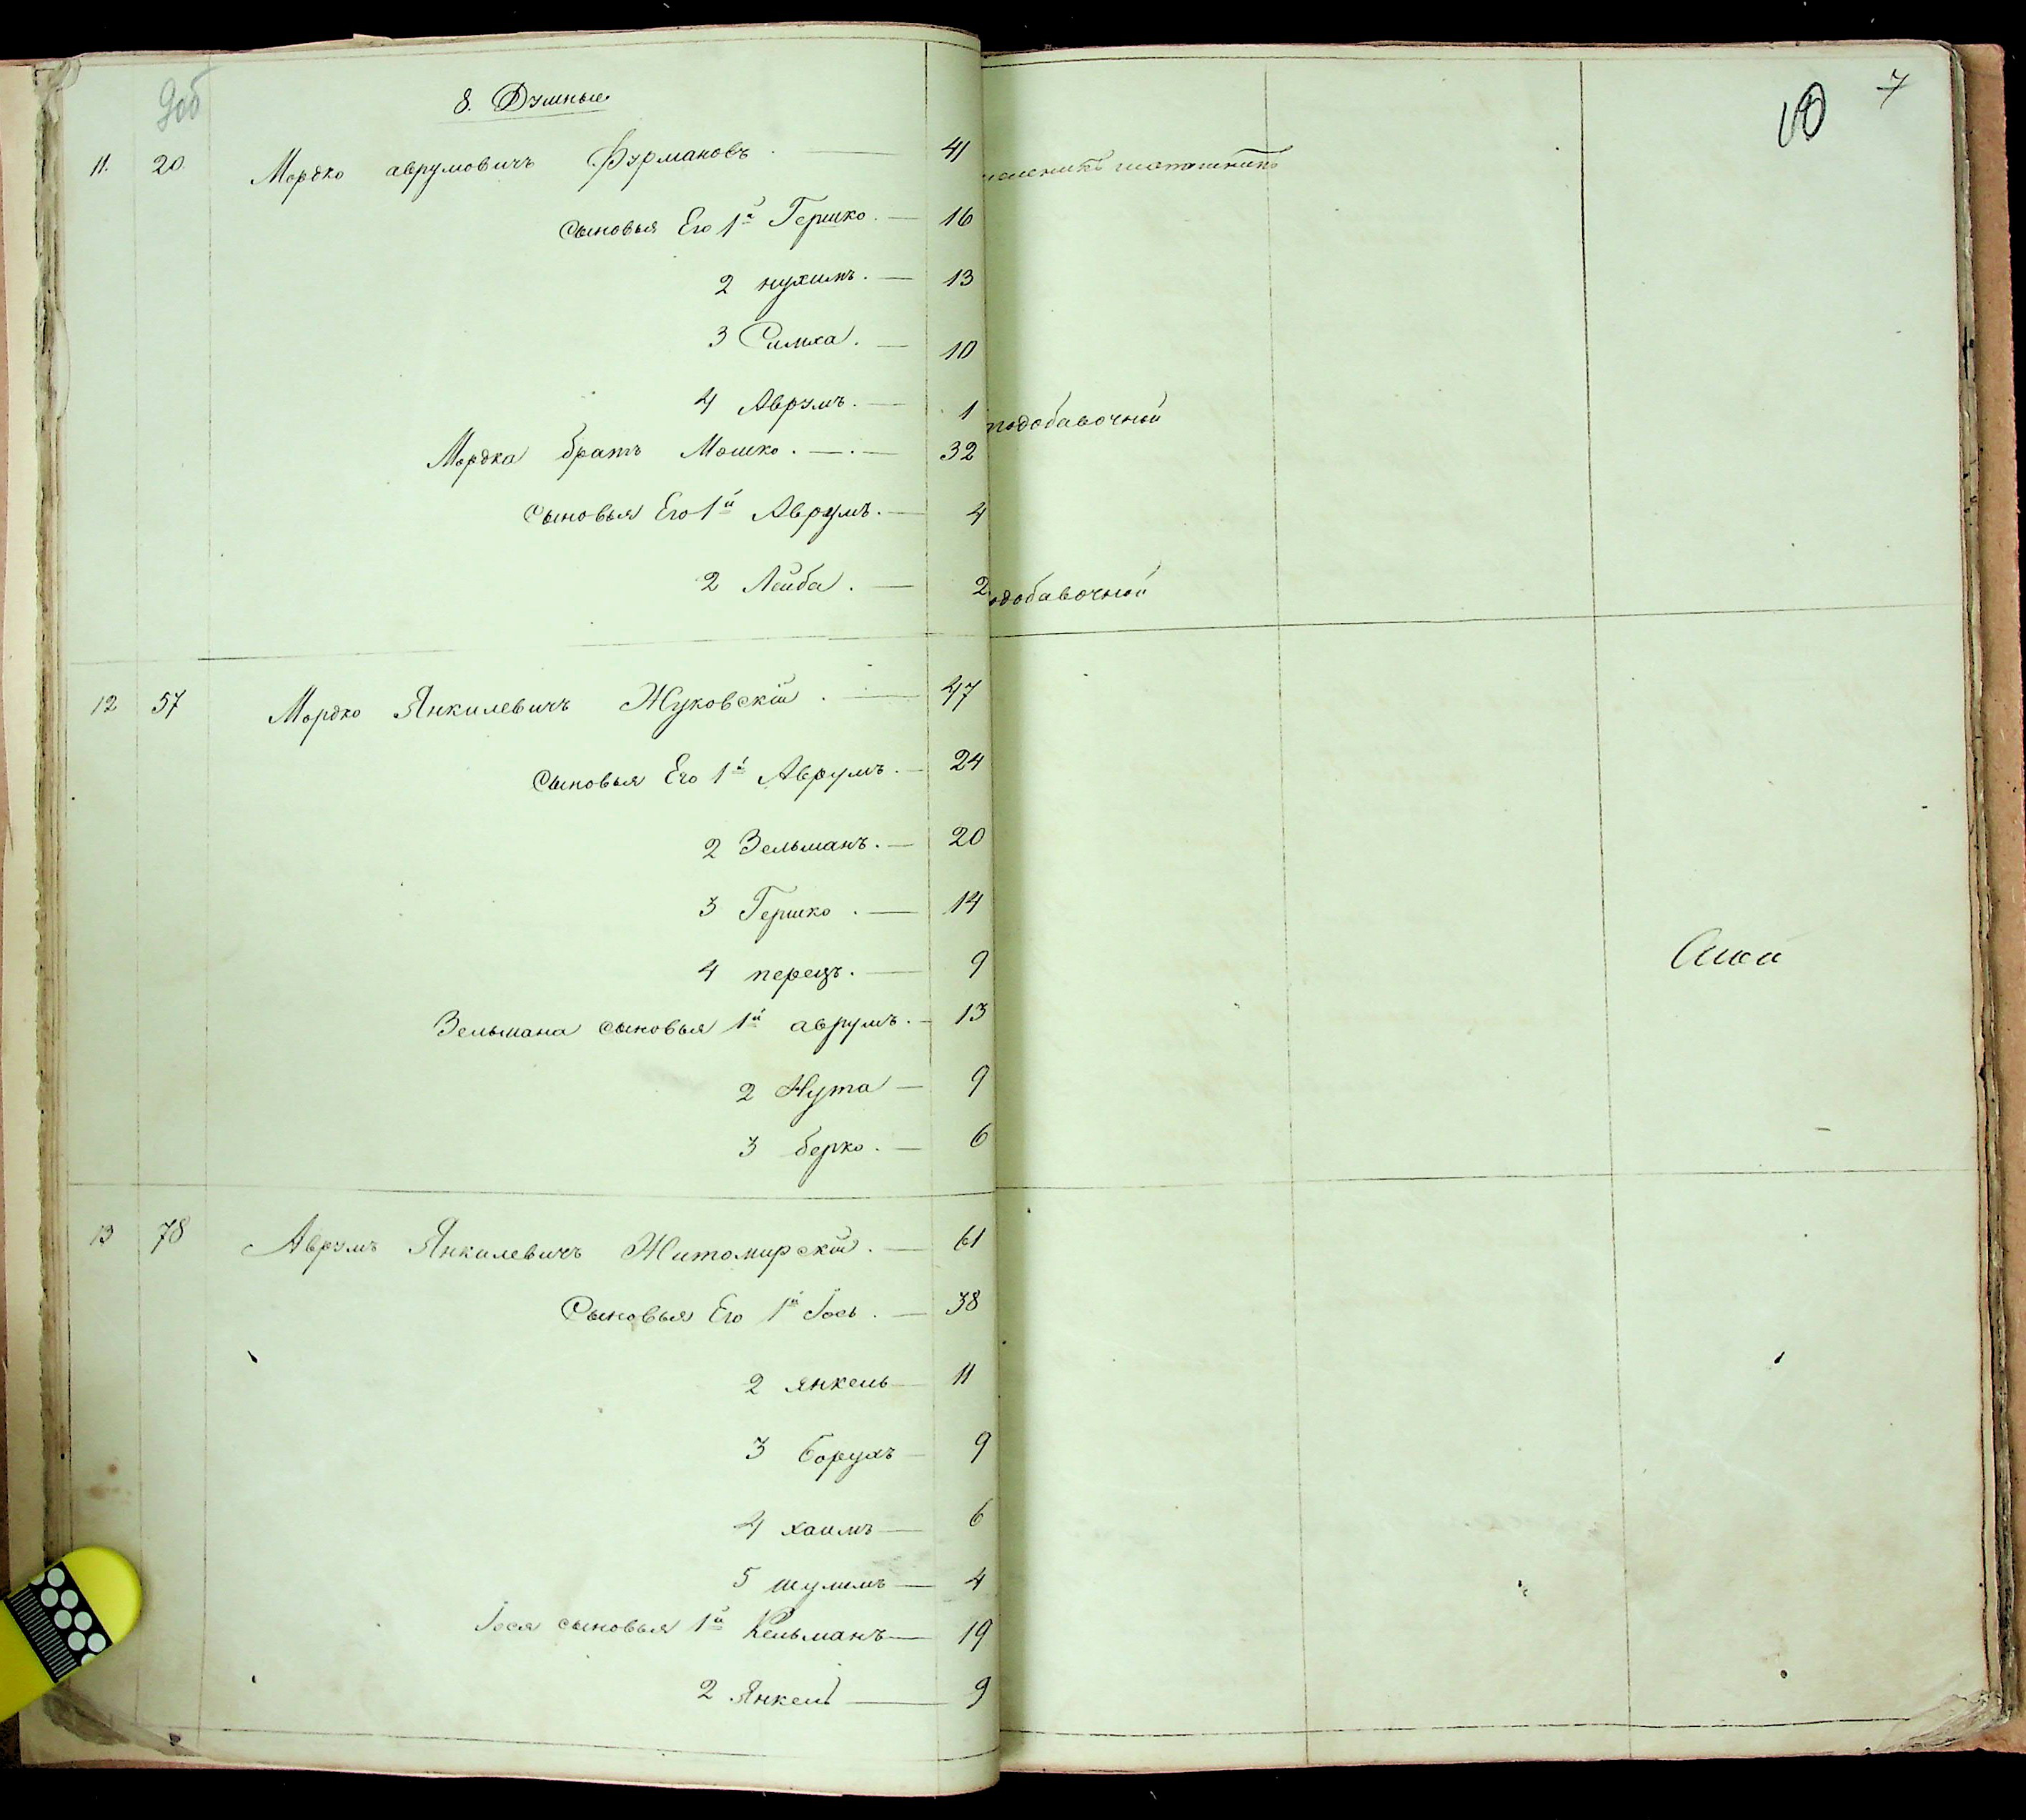 9об
8. Думные
11. 20. Мордко аврумовичъ Фурмановъ. — 41
Сыновья Его 1й Гершко. — 16
2 нухимъ. — 13
3 Симха. — 10
4 Аврумъ. — 1 подобавочный
Мордка братъ Мошко. — 32
Сыновья Его 1й Аврумъ. — 4
2 Лейба. — 2 одобавочный
12 57 Мордко Янкилевичъ Жуковскій. — 47
Сыновья Его 1й Аврумъ. — 24
2 Зельманъ. — 20
3 Гершко. — 14
4 перецъ. — 9
Зельмана сыновья 1й аврумъ. — 13
2 Нута — 9
3 берко. — 6
13 78 Аврумъ Янкилевичъ Житомирскій. — 61
Сыновья Его 1й Іось. — 38
2 янкель — 11
3 борухъ — 9
4 хаимъ — 6
5 шулимъ — 4
Іося сыновья 1й Кельманъ — 19
2 Янкель — 9
10 7